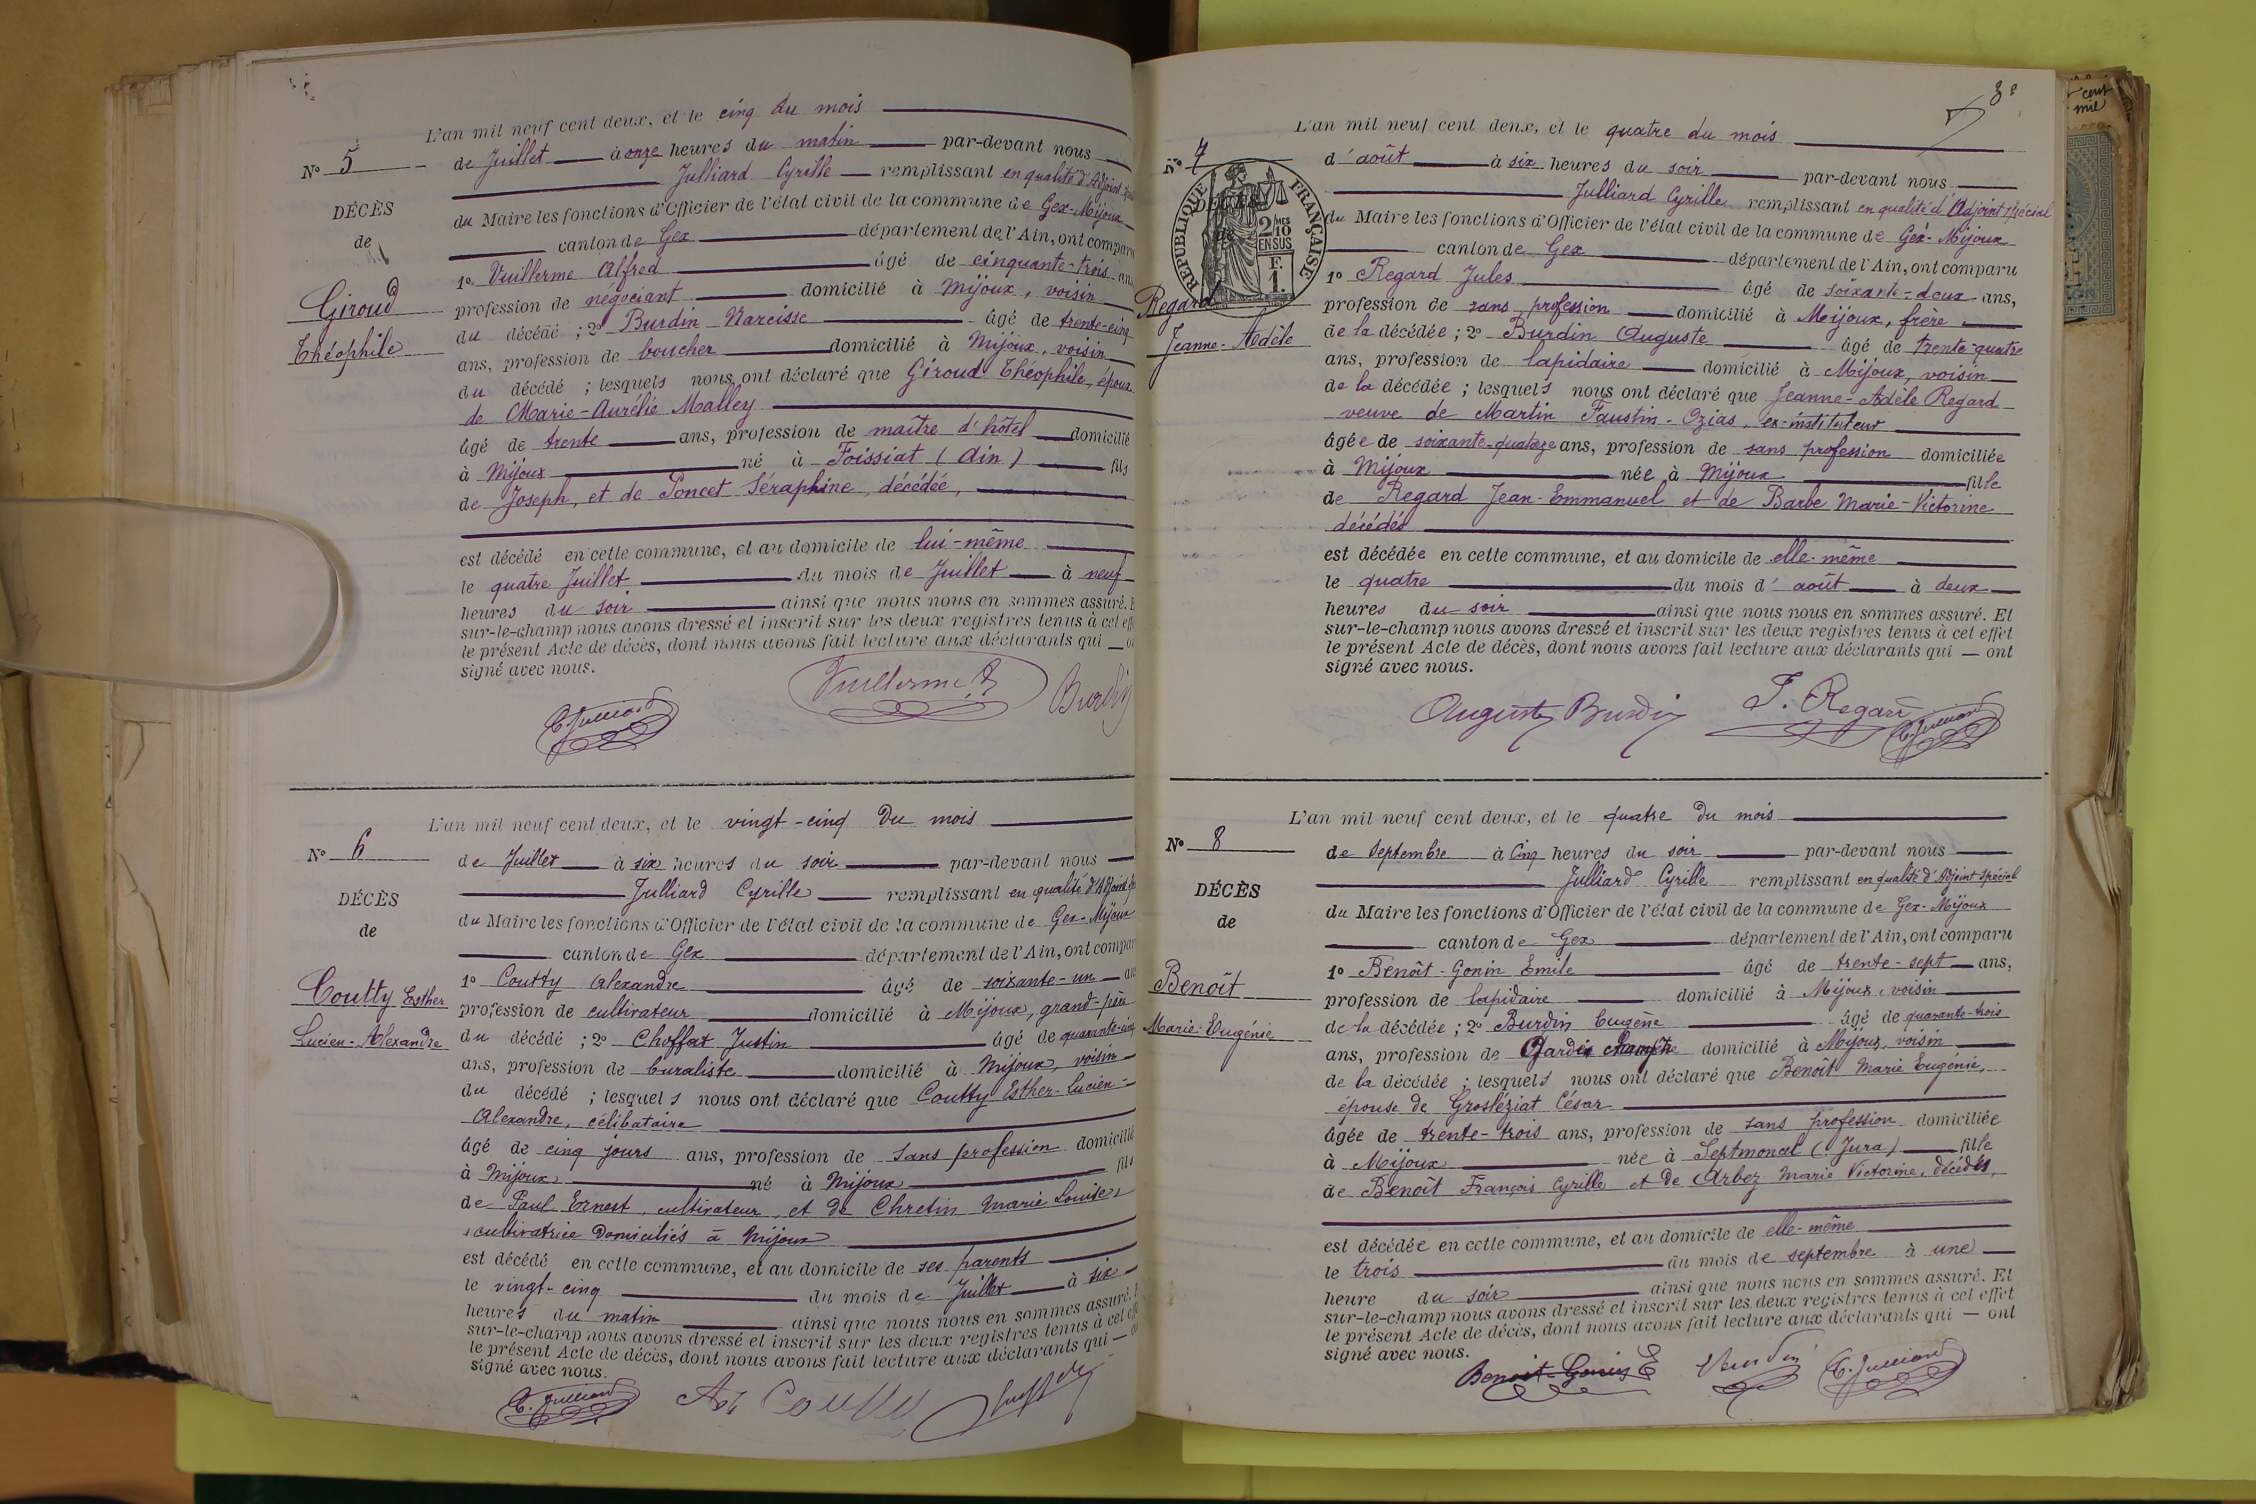 L'an mil neuf cent deux, et le cinq du mois
No 5
de Juillet à onze heures du matin par-devant nous
Julliard Cyrille remplissant en qualité d'Adjoint
DÉCÈS
du Maire les fonctions d'Officier de l'état civil de la commune de Gex-Mijoux
de
canton de Gex département de l'Ain, ont comparu
1o Vuillerme Alfred âgé de cinquante-trois ans
Giroud
profession de négociant domicilié à Mijoux, voisin
du décédé ; 2o Burdin Narcisse âgé de trente-cinq
Théophile
ans, profession de boucher domicilié à Mijoux, voisin
du décédé ; lesquels nous ont déclaré que Giroud Théophile, époux
de Marie-Aurélie Malley
âgé de trente ans, profession de maître d'hôtel domicilié
à Mijoux né à Foissiat (Ain) fils
de Joseph, et de Poncet Séraphine, décédée,
est décédé en cette commune, et au domicile de lui-même
le quatre Juillet du mois de Juillet à neuf
heures du soir ainsi que nous nous en sommes assuré. E
sur-le-champ nous avons dressé et inscrit sur les deux registres tenus à cet eff
le présent Acte de décès, dont nous avons fait lecture aux déclarants qui — o
signé avec nous.
Vuillerme A
Burdin
C. Julliard
L'an mil neuf cent deux, et le vingt-cinq du mois
No 6
de Juillet à six heures du soir par-devant nous
Julliard Cyrille remplissant en qualité d'Adjoint
DÉCÈS
du Maire les fonctions d'Officier de l'état civil de la commune de Gex-Mijoux
de
canton de Gex département de l'Ain, ont compar
1o Coutty Alexandre âgé de soixante-un ans
Coutty Esther
profession de cultivateur domicilié à Mijoux, grand-père
Lucien-Alexandre
du décédé ; 2o Choffat Justin âgé de quarante-cinq
ans, profession de buraliste domicilié à Mijoux, voisin
du décédé ; lesquels nous ont déclaré que Coutty Esther-Lucien-
Alexandre, célibataire
âgé de cinq jours ans, profession de sans profession domicilié
à Mijoux né à Mijoux fils
de Paul Ernest, cultivateur, et de Chretin Marie Louise,
cultivatrice domiciliés à Mijoux
est décédé en cette commune, et au domicile de ses parents
le vingt-cinq du mois de Juillet à six
heures du matin ainsi que nous nous en sommes assuré.
sur-le-champ nous avons dressé et inscrit sur les deux registres tenus à cet eff
le présent Acte de décès, dont nous avons fait lecture aux déclarants qui —
signé avec nous.
C. Julliard
Coutty
L'an mil neuf cent deux, et le quatre du mois
No 7
d'août à six heures du soir par-devant nous
Julliard Cyrille remplissant en qualité d'Adjoint spécial
DÉCÈS
de
RÉPUBLIQUE FRANÇAISE
2/10 MES EN SUS
F. 1.
du Maire les fonctions d'Officier de l'état civil de la commune de Gex-Mijoux
canton de Gex département de l'Ain, ont comparu
1o Regard Jules âgé de soixante-deux ans,
Regard
profession de sans profession domicilié à Mijoux, frère
Jeanne-Adèle
de la décédée ; 2o Burdin Auguste âgé de trente-quatre
ans, profession de lapidaire domicilié à Mijoux, voisin
de la décédée ; lesquels nous ont déclaré que Jeanne-Adèle Regard
veuve de Martin Faustin-Ozias, ex-instituteur
âgée de soixante-quatorze ans, profession de sans profession domiciliée
à Mijoux née à Mijoux fille
de Regard Jean-Emmanuel et de Barbe Marie-Victorine
décédés
est décédée en cette commune, et au domicile de elle-même
le quatre du mois d'août à deux
heures du soir ainsi que nous nous en sommes assuré. Et
sur-le-champ nous avons dressé et inscrit sur les deux registres tenus à cet effet
le présent Acte de décès, dont nous avons fait lecture aux déclarants qui — ont
signé avec nous.
Auguste Burdin
J. Regard
C. Julliard
L'an mil neuf cent deux, et le quatre du mois
No 8
de Septembre à cinq heures du soir par-devant nous
Julliard Cyrille remplissant en qualité d'Adjoint spécial
DÉCÈS
du Maire les fonctions d'Officier de l'état civil de la commune de Gex-Mijoux
de
canton de Gex département de l'Ain, ont comparu
1o Benoît-Gonin Emile âgé de trente-sept ans,
Benoît
profession de lapidaire domicilié à Mijoux, voisin
Marie-Eugénie
de la décédée ; 2o Burdin Eugène âgé de quarante-trois
ans, profession de Garde champêtre domicilié à Mijoux, voisin
de la décédée ; lesquels nous ont déclaré que Benoît Marie Eugénie,
épouse de Grosléziat César
âgée de trente-trois ans, profession de sans profession domiciliée
à Mijoux née à Septmoncel (Jura) fille
de Benoît François Cyrille et de Arbez Marie Victorine, décédés,
est décédée en cette commune, et au domicile de elle-même
le trois du mois de septembre à une
heure du soir ainsi que nous nous en sommes assuré. Et
sur-le-champ nous avons dressé et inscrit sur les deux registres tenus à cet effet
le présent Acte de décès, dont nous avons fait lecture aux déclarants qui — ont
signé avec nous.
Benoit-Gonin E
Burdin
C. Julliard
cent
mil